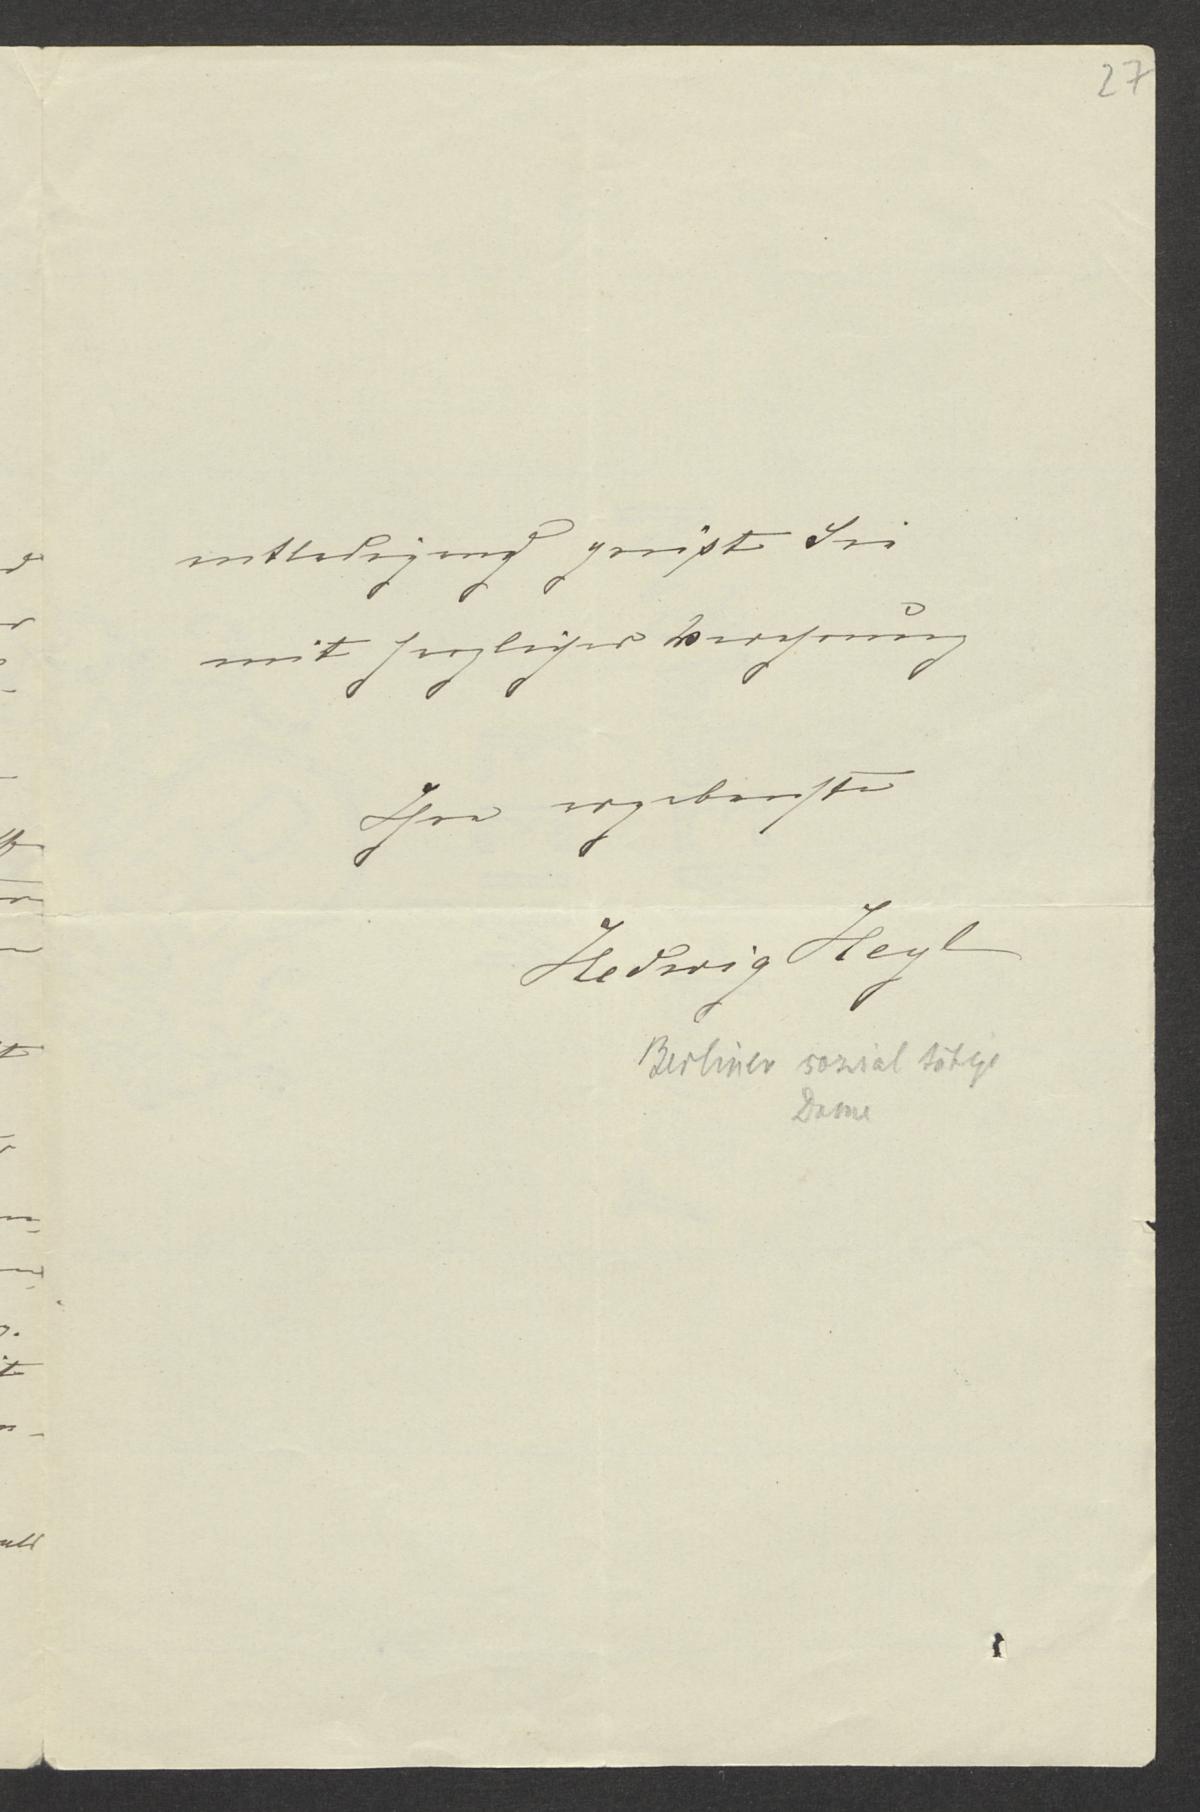 27
entledigend grüßt Sie
mit herzlicher Verehrung
Ihre ergebenste
Hedwig Heyl
Berliner sozial tätige
Dame